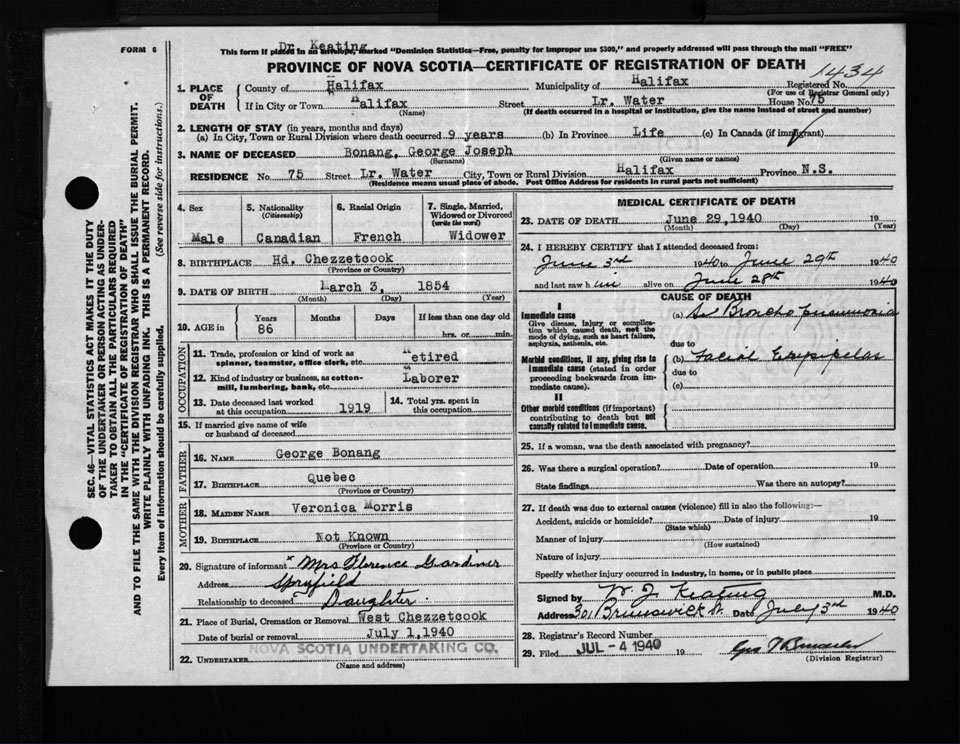 FORM 6
Dr. Keating
This form if placed in an envelope, marked "Dominion Statistics—Free, penalty for improper use $300," and properly addressed will pass through the mail "FREE"
PROVINCE OF NOVA SCOTIA—CERTIFICATE OF REGISTRATION OF DEATH
1434
1. PLACE OF DEATH
County of Halifax Municipality of Halifax Registered No.
(For use of Registrar General only)
If in City or Town Halifax Street Lr. Water House No. 75
(Name) (If death occurred in a hospital or institution, give the name instead of street and number)
2. LENGTH OF STAY (in years, months and days)
(a) In City, Town or Rural Division where death occurred 9 years (b) In Province Life (c) In Canada (if immigrant)
3. NAME OF DECEASED Bonang, George Joseph
(Surname) (Given name or names)
RESIDENCE No. 75 Street Lr. Water City, Town or Rural Division Halifax Province N.S.
(Residence means usual place of abode. Post Office Address for residents in rural parts not sufficient)
4. Sex
Male
5. Nationality
(Citizenship)
Canadian
6. Racial Origin
French
7. Single, Married, Widowed or Divorced
(write the word)
Widower
8. BIRTHPLACE Hd. Chezzetcook
(Province or Country)
9. DATE OF BIRTH March 3, 1854
(Month) (Day) (Year)
10. AGE in
Years Months Days If less than one day old
86 hrs. or min.
OCCUPATION
11. Trade, profession or kind of work as spinner, teamster, office clerk, etc. Retired
12. Kind of industry or business, as cotton-mill, lumbering, bank, etc. Laborer
13. Date deceased last worked at this occupation 1919
14. Total yrs. spent in this occupation
15. If married give name of wife or husband of deceased
FATHER
16. NAME George Bonang
17. BIRTHPLACE Quebec
(Province or Country)
MOTHER
18. MAIDEN NAME Veronica Morris
19. BIRTHPLACE Not Known
(Province or Country)
20. Signature of informant x Mrs Florence Gardiner
Address Spryfield
Relationship to deceased Daughter.
21. Place of Burial, Cremation or Removal West Chezzetcook
Date of burial or removal July 1, 1940
NOVA SCOTIA UNDERTAKING CO.
22. UNDERTAKER
(Name and address)
MEDICAL CERTIFICATE OF DEATH
23. DATE OF DEATH June 29, 1940 19
(Month) (Day) (Year)
24. I HEREBY CERTIFY that I attended deceased from:
June 3rd 1940 to June 29th 1940
and last saw him alive on June 28th 1940
CAUSE OF DEATH
I
Immediate cause
Give disease, injury or complication which caused death, not the mode of dying, such as heart failure, asphyxia, asthenia, etc.
(a) Broncho pneumonia
due to
Morbid conditions, if any, giving rise to immediate cause (stated in order proceeding backwards from immediate cause).
(b) Facial Erysipelas
due to
(c)
II
Other morbid conditions (if important) contributing to death but not causally related to immediate cause.
25. If a woman, was the death associated with pregnancy?
26. Was there a surgical operation? Date of operation 19
State findings Was there an autopsy?
27. If death was due to external causes (violence) fill in also the following:—
Accident, suicide or homicide? Date of injury 19
(State which)
Manner of injury
(How sustained)
Nature of injury
Specify whether injury occurred in industry, in home, or in public place
Signed by W J Keating M.D.
Address 301 Brunswick St. Date July 3rd 1940
28. Registrar's Record Number
29. Filed JUL - 4 1940 19
(Division Registrar)
SEC. 46—VITAL STATISTICS ACT MAKES IT THE DUTY
OF THE UNDERTAKER OR PERSON ACTING AS UNDER-
TAKER TO OBTAIN ALL THE PARTICULARS REQUIRED
IN THE "CERTIFICATE OF REGISTRATION OF DEATH"
AND TO FILE THE SAME WITH THE DIVISION REGISTRAR WHO SHALL ISSUE THE BURIAL PERMIT.
WRITE PLAINLY WITH UNFADING INK. THIS IS A PERMANENT RECORD.
Every item of information should be carefully supplied. (See reverse side for instructions.)